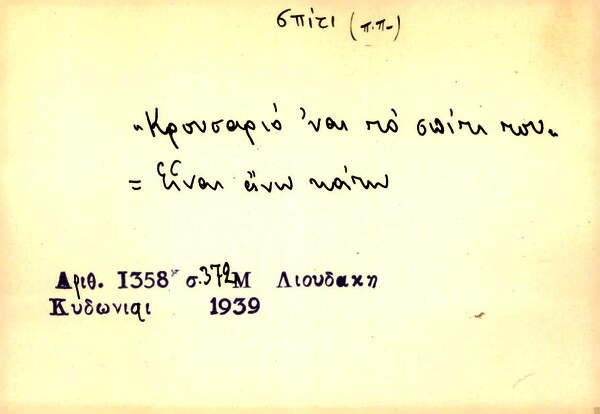 σπίτι (π.π.)
"Κρουσαριό 'ναι τό σπίτι του"
= Εἶναι ἄνω κάτω
Αριθ. 1358 σ.372 Μ Λιουδακη
Κυδωνιαι 1939